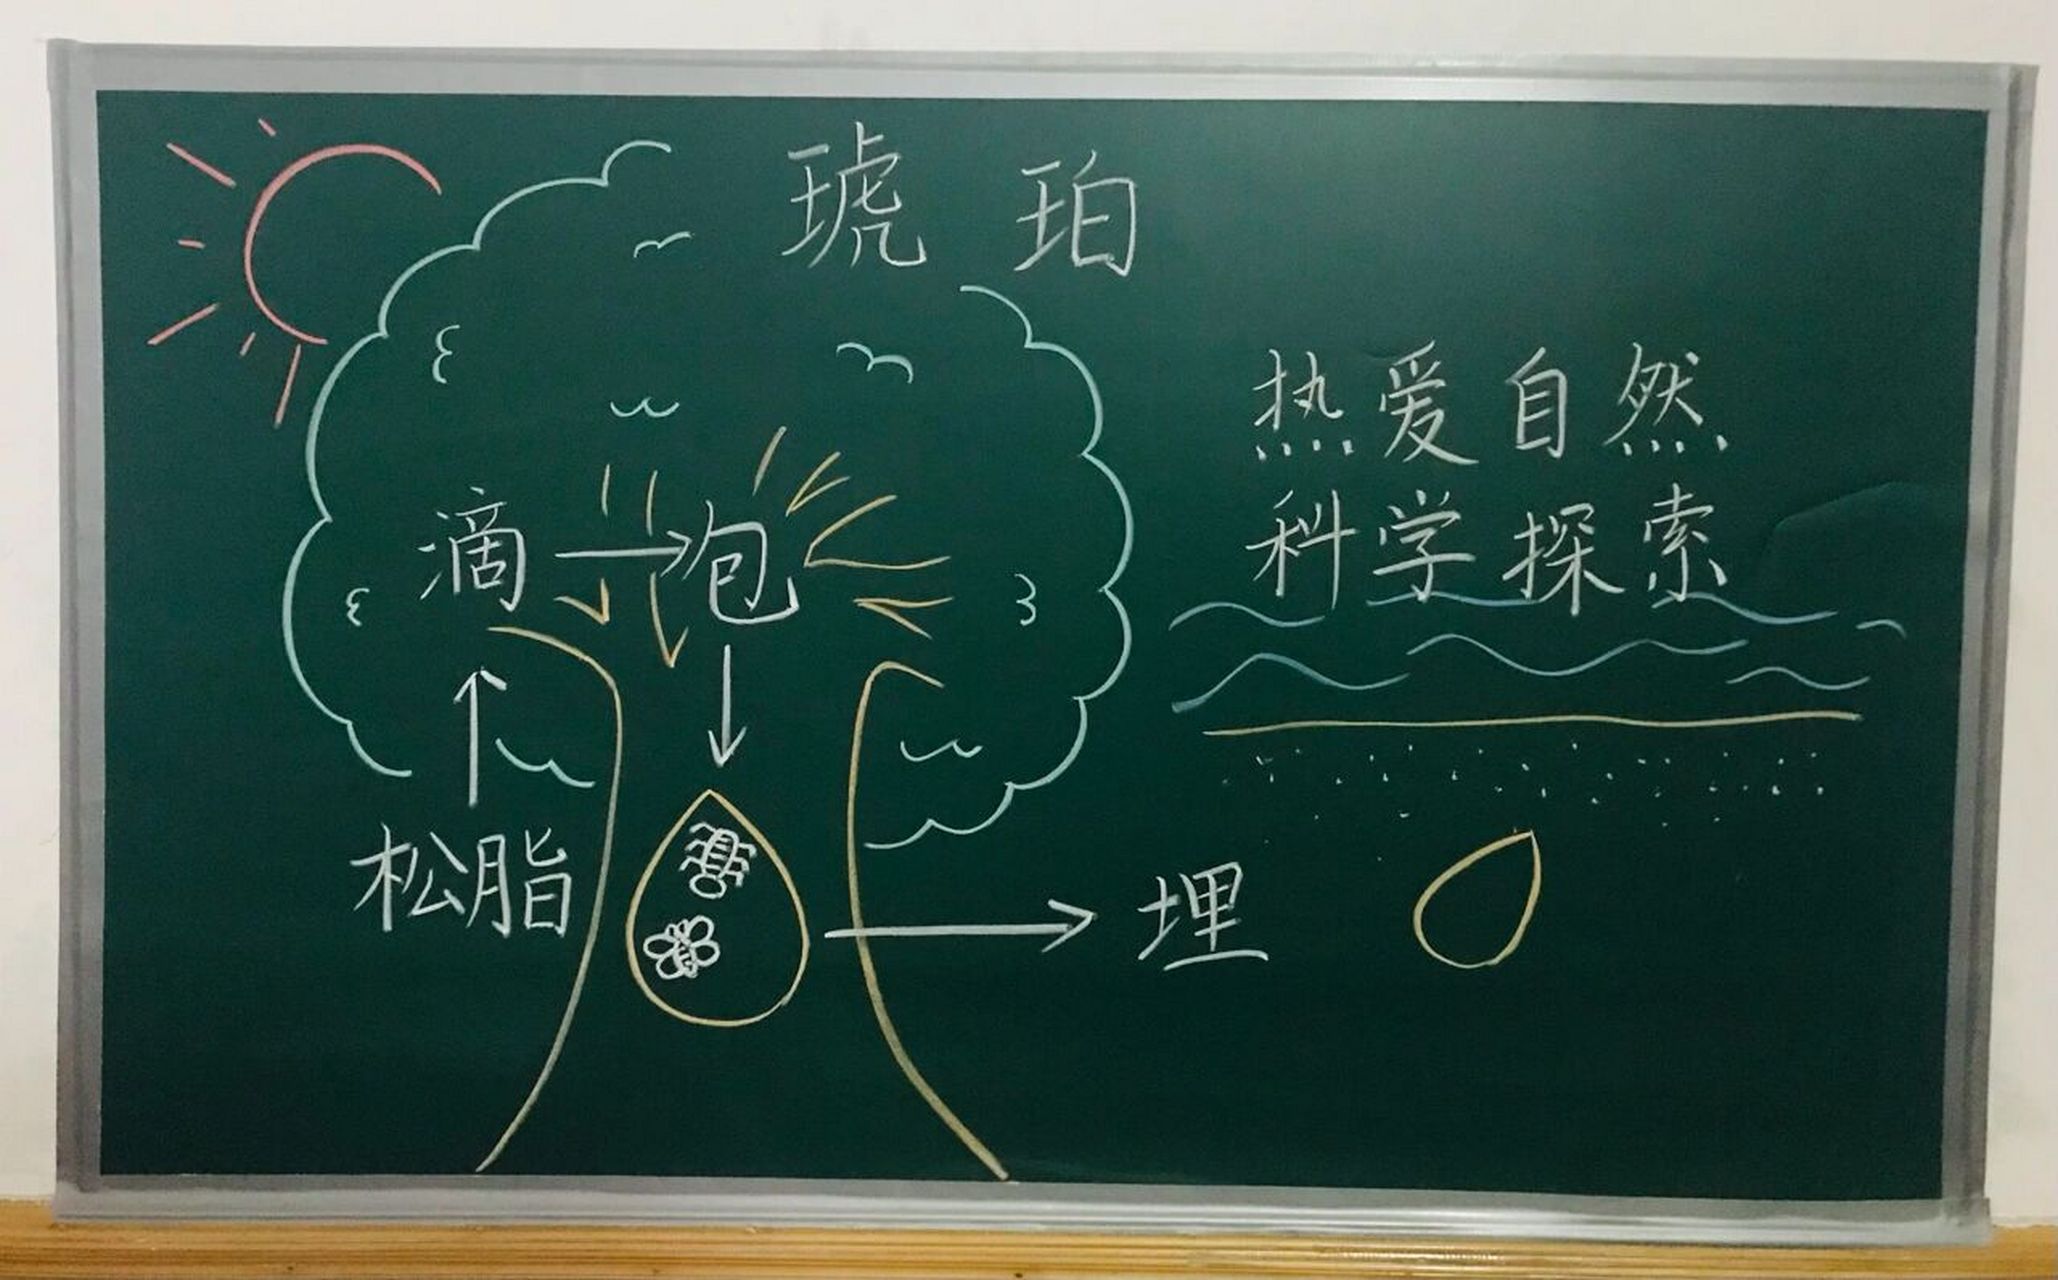 琥珀
热爱自然
科学探索
滴 包
松脂
埋